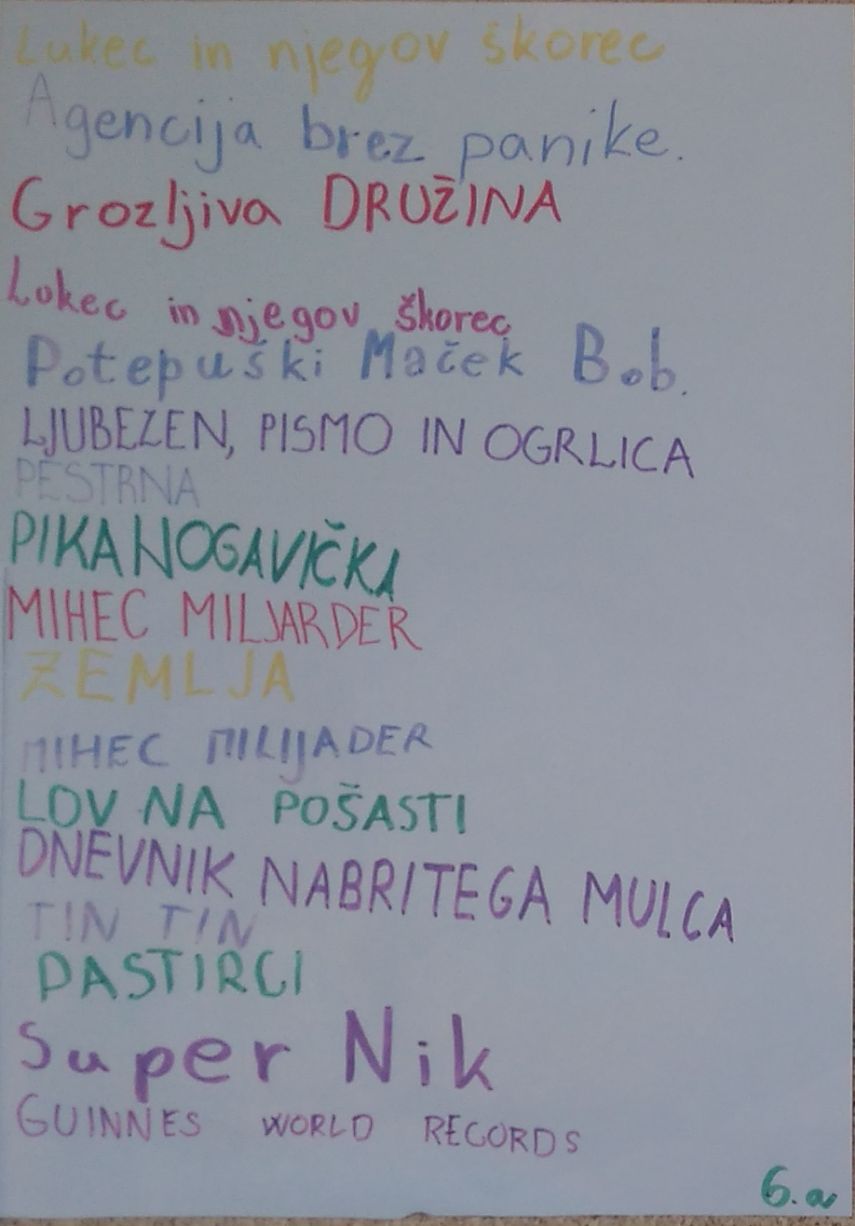 Lukec in njegov škorec
Agencija brez panike.
Grozljiva DRUŽINA
Lokec in njegov škorec
Potepuški Maček Bob.
LJUBEZEN, PISMO IN OGRLICA
PESTRNA
PIKA NOGAVIČKA
MIHEC MILJARDER
ZEMLJA
MIHEC MILIJADER
LOV NA POŠASTI
DNEVNIK NABRITEGA MULCA
TIN TIN
PASTIRCI
Super Nik
GUINNES WORLD RECORDS
6.a